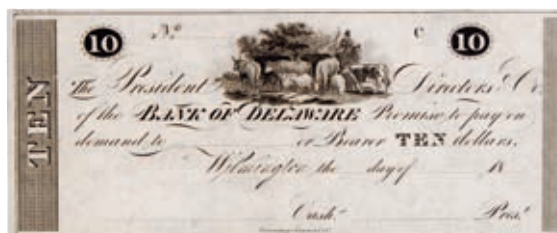 10 No. C 10
TEN
The President Directors & Co.
of the BANK OF DELAWARE Promise to pay on
demand to or Bearer TEN dollars.
Wilmington the day of 18
Cash.r Pres.t